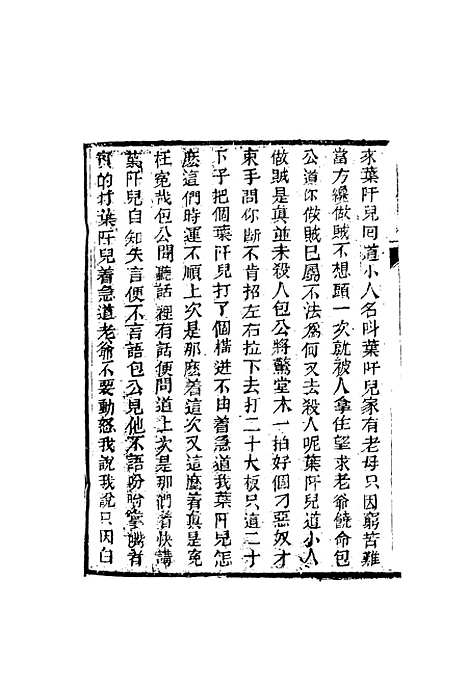 來葉阡兒回道小人名叫葉阡兒家有老母只因窮苦難
當方纔做賊不想頭一次就被人拿住望求老爺饒命包
公道你做賊已屬不法爲何又去殺人呢葉阡兒道小人
做賊是真並未殺人包公將驚堂木一拍好個刁惡奴才
束手問你斷不肯招左右拉下去打二十大板只道二十
下子把個葉阡兒打了個橫迸不由着急道我葉阡兒怎
麽這們時運不順上次是那麽着這次又這麽着真是冤
枉冤哉包公聞聽話裡有話便問道上次是那們着快講
葉阡兒自知失言便不言語包公見他不語吩咐掌嘴着
實的打葉阡兒着急道老爺不要動怒我說我說只因白